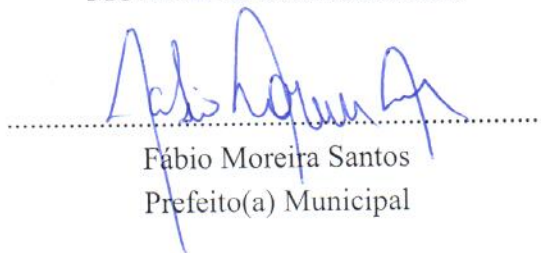 Fábio Moreira Santos
Prefeito(a) Municipal